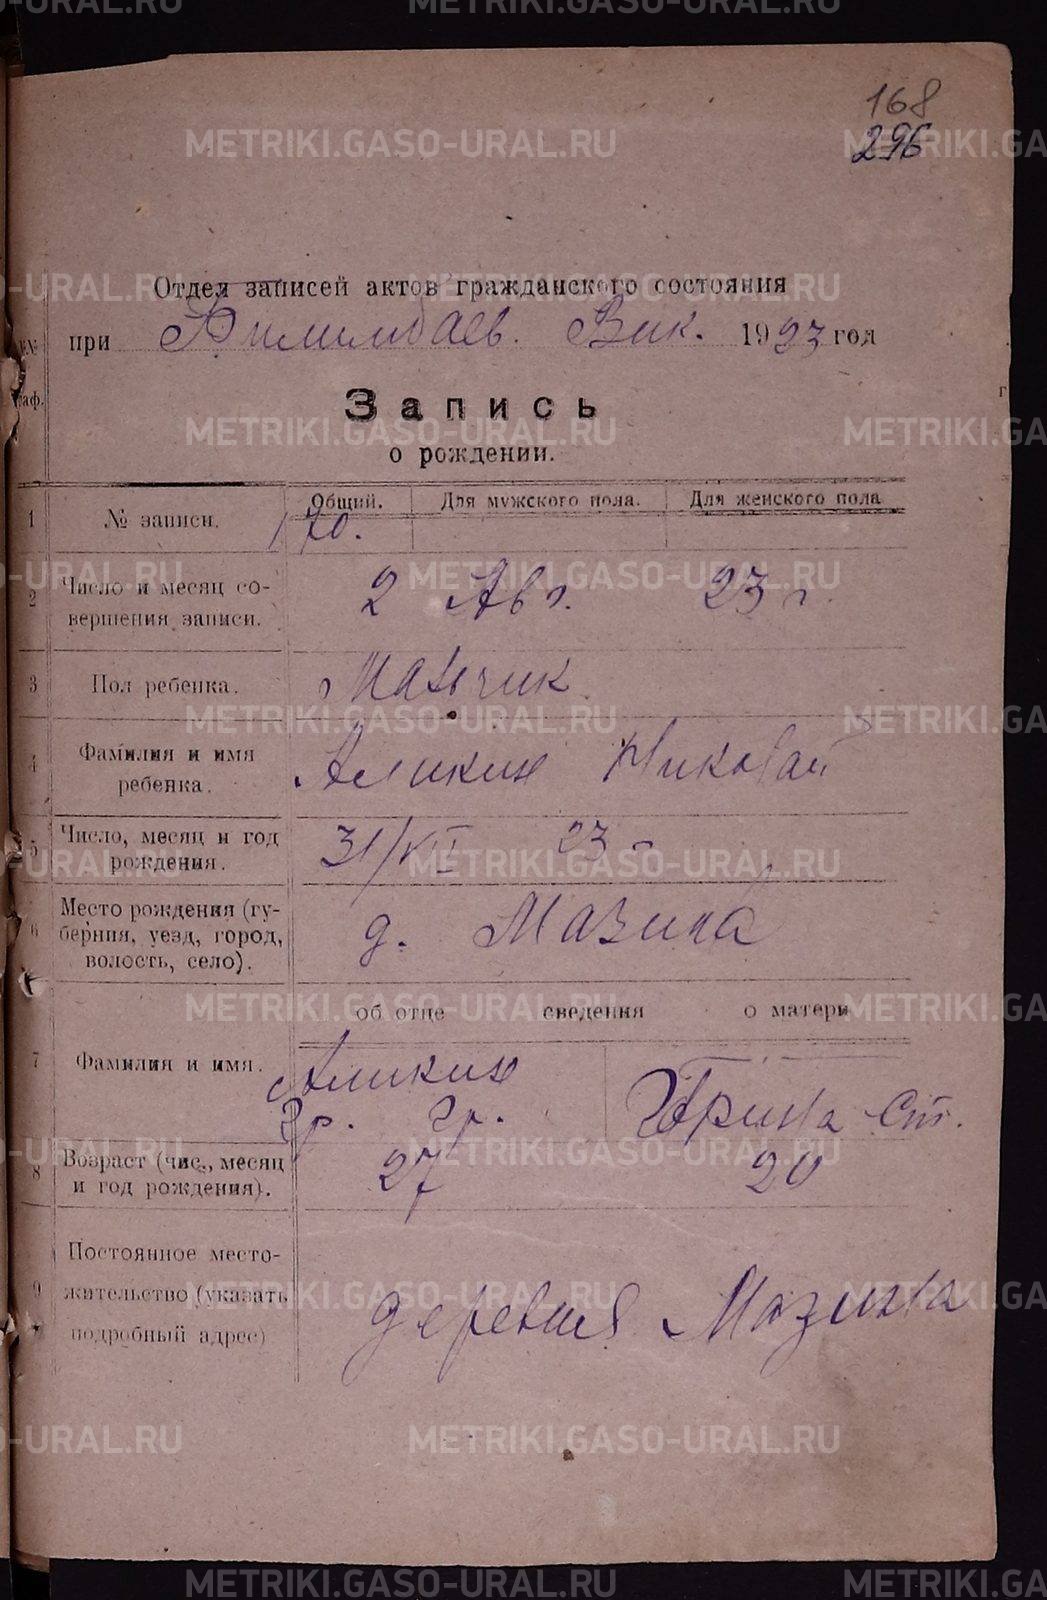 168
296
Отдел записей актов гражданского состояния
при Билимбаев. Вик. 1923 год
Запись
о рождении.
Общий. Для мужского пола. Для женского пола
1 № записи. 170.
2 Число и месяц со-
вершения записи. 2 Авг. 23 г.
3 Пол ребенка. Мальчик
4 Фамилия и имя
ребенка. Аликин Николай
5 Число, месяц и год
рождения. 31/VII 23 г
6 Место рождения (гу-
берния, уезд, город,
волость, село). д. Мазина
об отце сведения о матери
7 Фамилия и имя. Аликин
Гр. Гр. Ирина Ст.
8 Возраст (чис., месяц
и год рождения). 27 20
9 Постоянное место-
жительство (указать
подробный адрес) деревня Мазина
METRIKI.GASO-URAL.RU